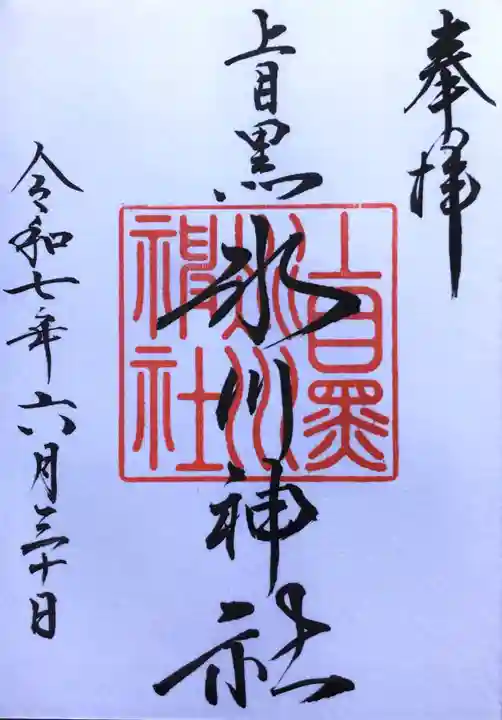 奉拝
上目黒氷川神社
上目黒
氷川
神社
令和七年六月三十日